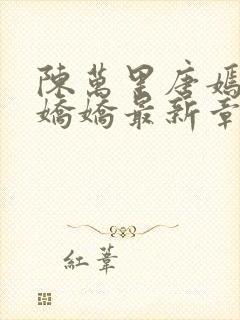 陳萬里唐嫣
嬌嬌最新章
紅葦